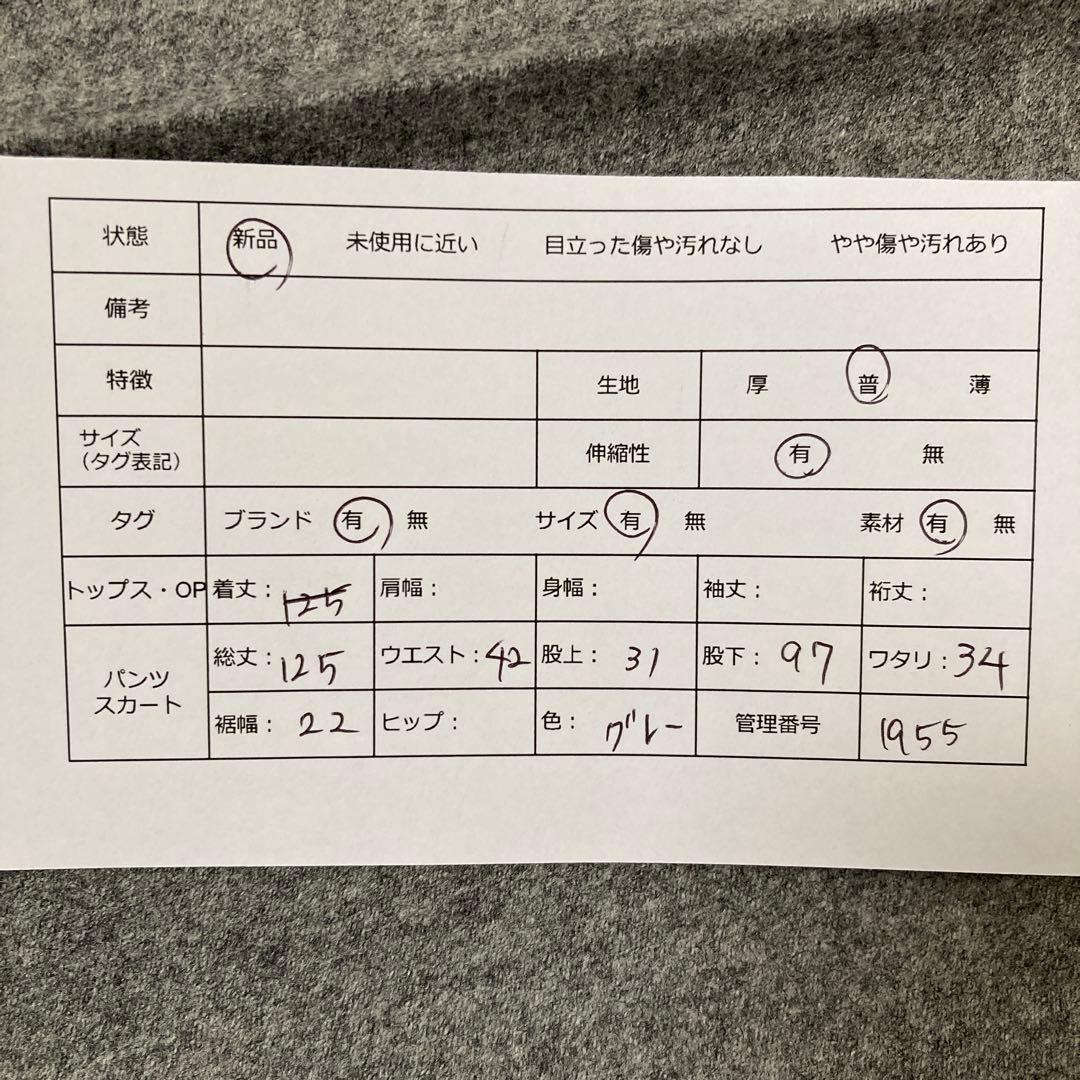 状態 新品 未使用に近い 目立った傷や汚れなし やや傷や汚れあり
備考
特徴 生地 厚 普 薄
サイズ
（タグ表記） 伸縮性 有 無
タグ ブランド 有 無 サイズ 有 無 素材 有 無
トップス・OP 着丈： 125 肩幅： 身幅： 袖丈： 裄丈：
パンツ
スカート
総丈： 125 ウエスト： 42 股上： 31 股下： 97 ワタリ： 34
裾幅： 22 ヒップ： 色： グレー 管理番号 1955